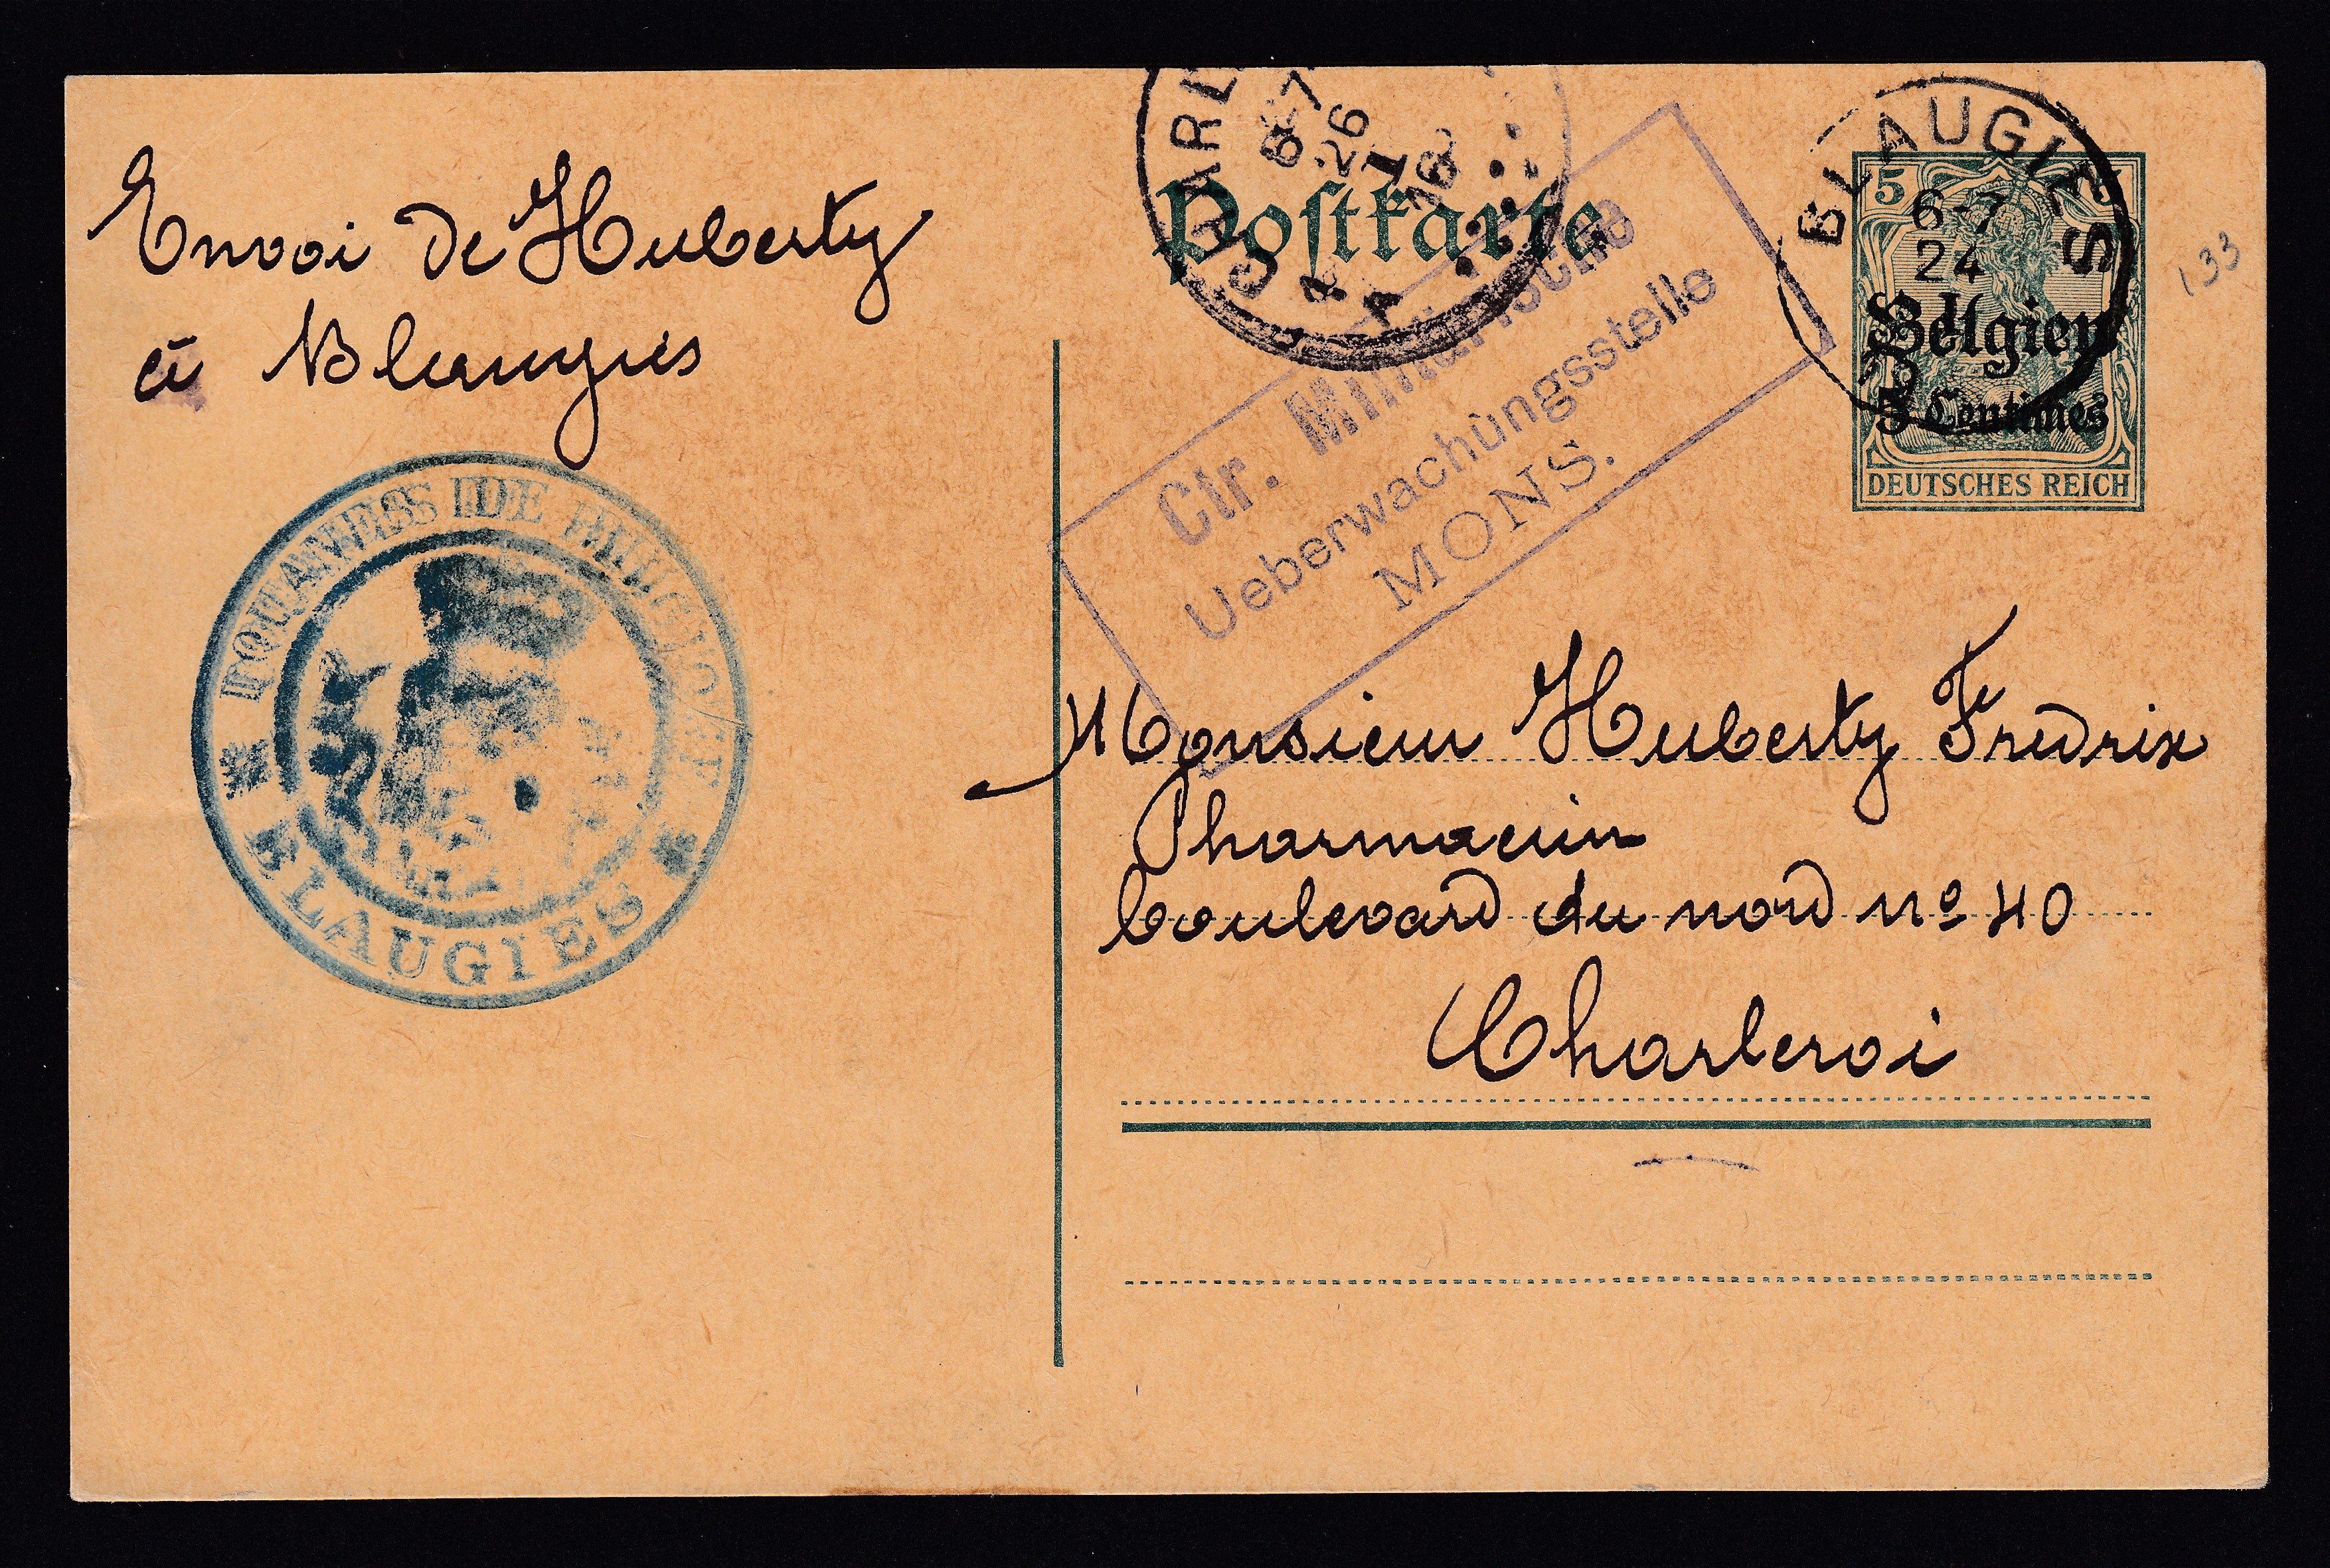 Envoi de Huberty
à Blaugies
DOUANES DE
BLAUGIES
Postkarte
CHARL
6-7
26
I
16
1
A
Ctr. Militärische
Ueberwachungsstelle
MONS.
BLAUGIES
6-7
24
5
5
Belgien
5 Centimes
DEUTSCHES REICH
133
Monsieur Huberty Fredrix
Pharmacien
boulevard du nord nº 40
Charleroi